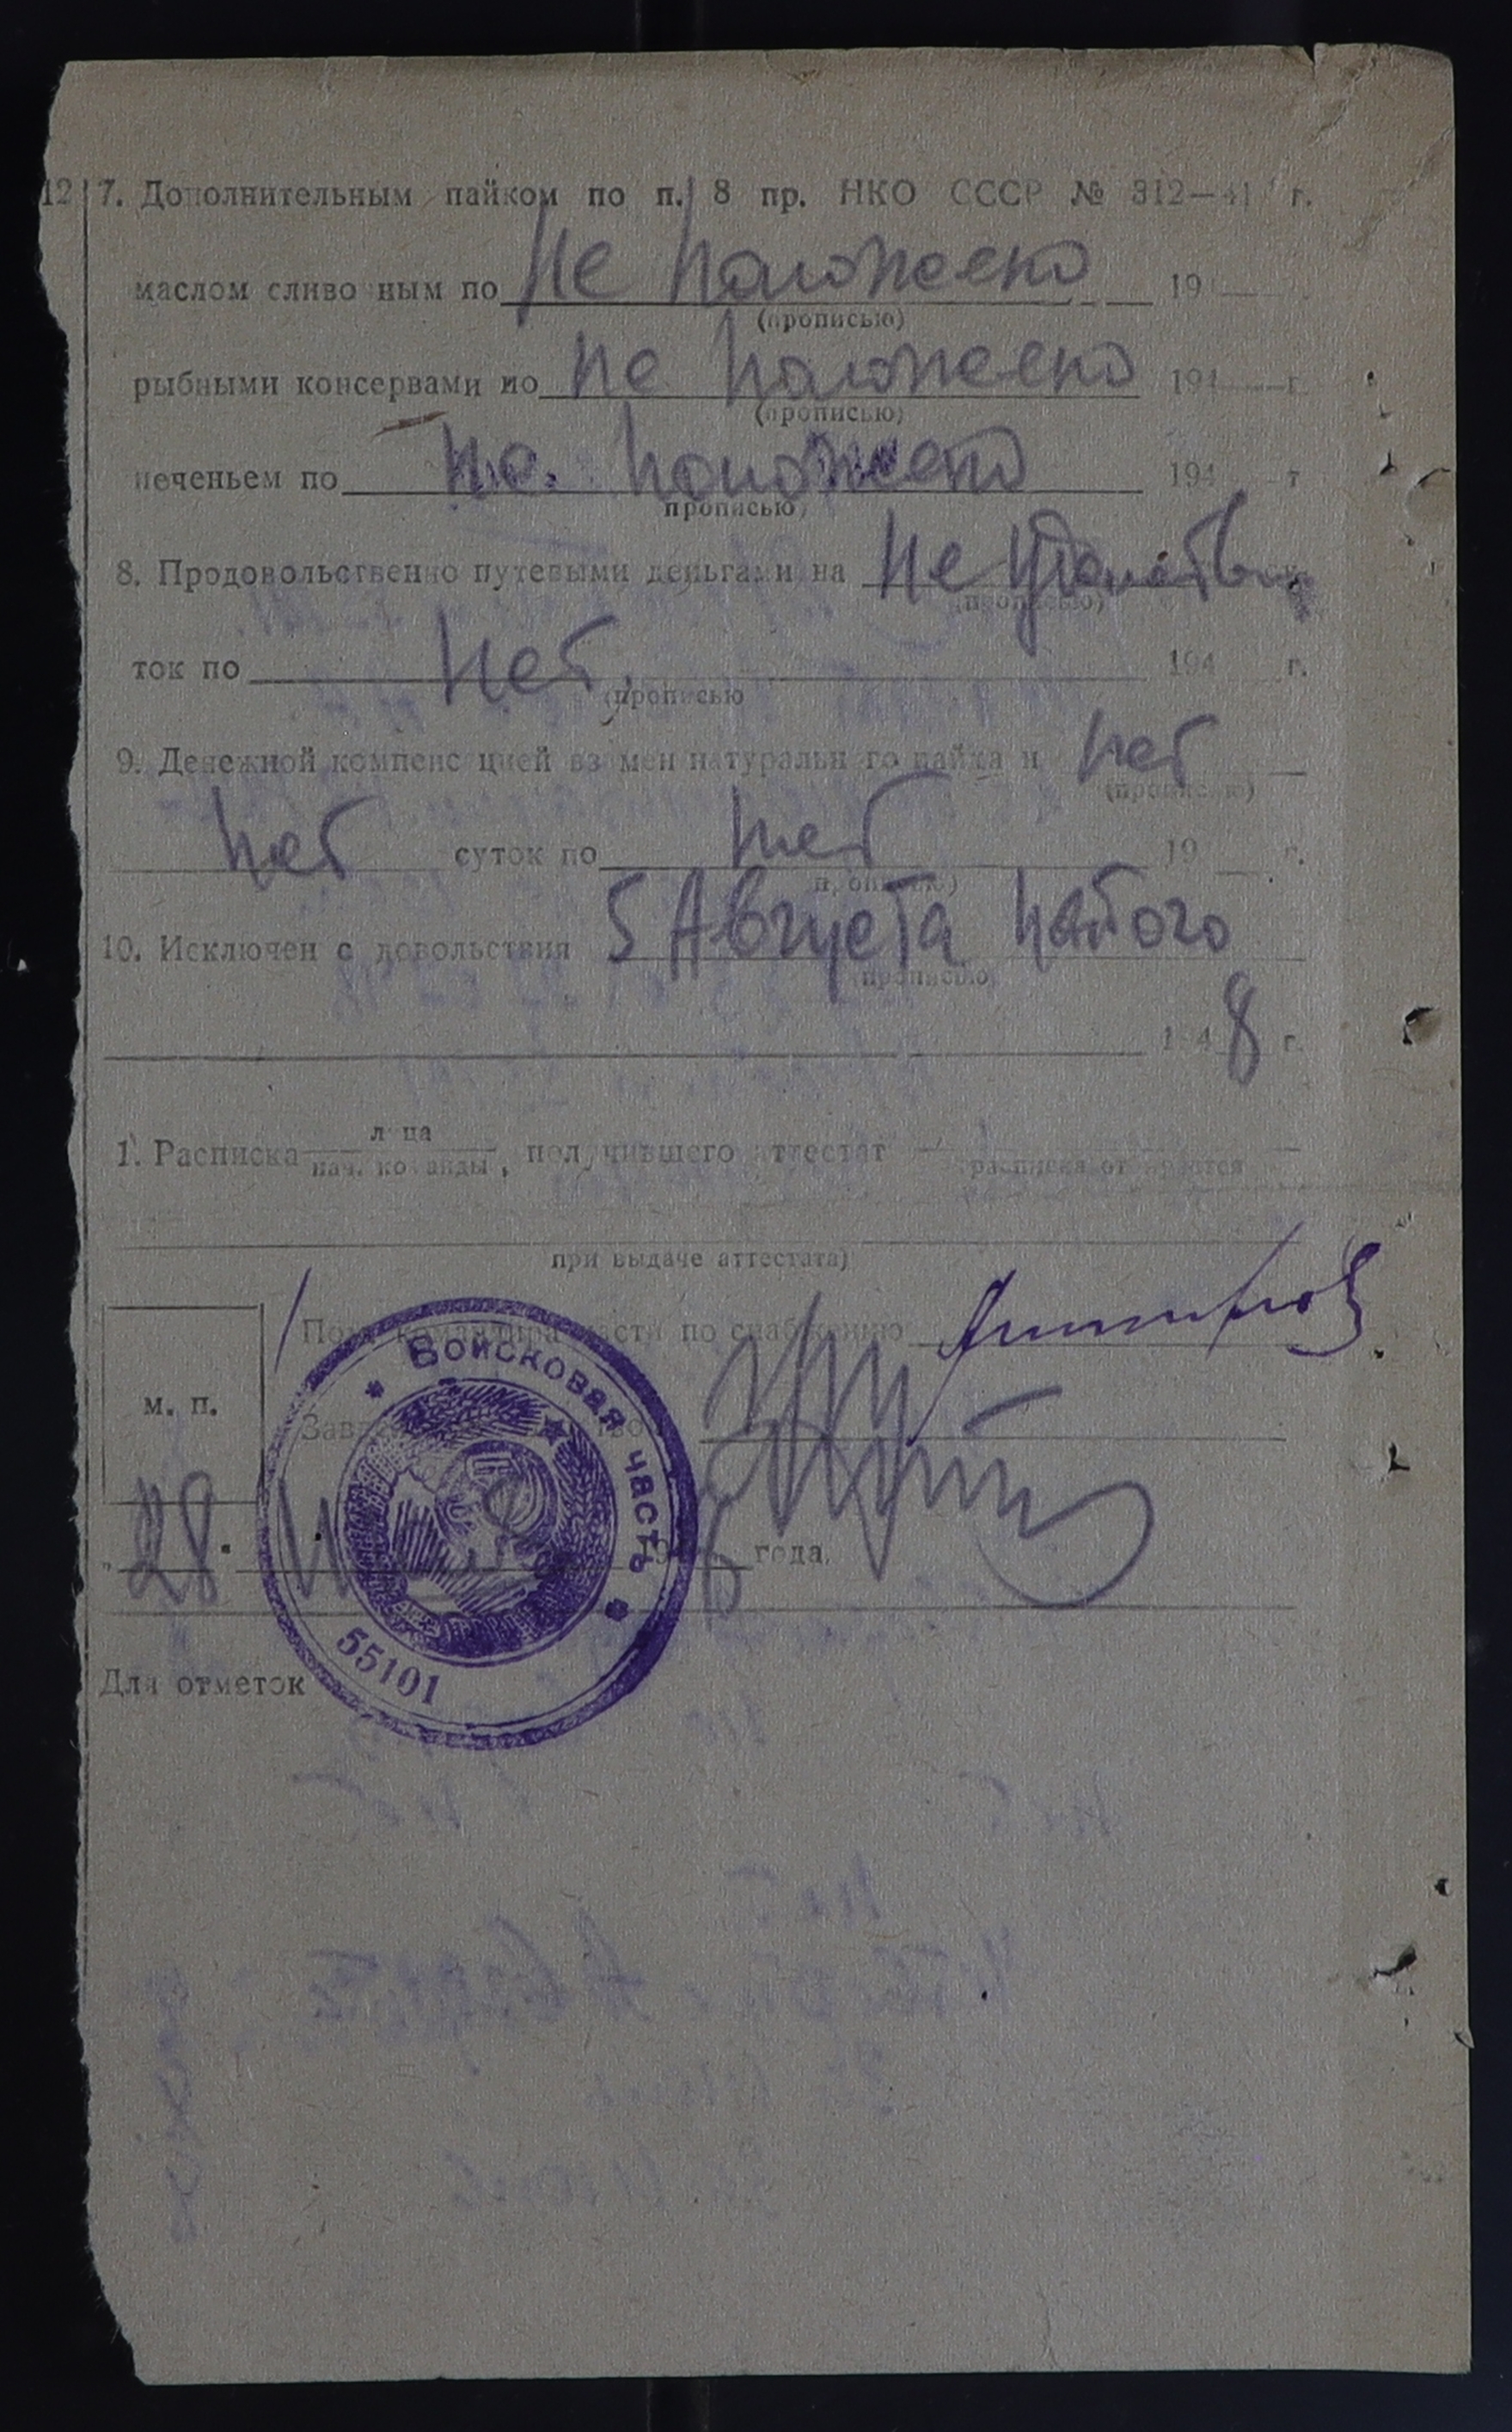 12 7. Дополнительным пайком по п. 8 пр. НКО СССР № 312—41 г.
маслом сливо ным по Не положено 19
(прописью)
рыбными консервами по не положено 194 г.
(прописью)
печеньем по не положено 194 г
прописью)
8. Продовольственно путевыми деньгами на Не
(прописью)
ток по нет 194 г.
(прописью
9. Денежной компенс цией вз мен натуральн го пайка н нет
(прописью)
нет суток по нет 19 г.
10. Исключен с довольствия 5 Августа пятого
(прописью)
1948 г.
1. Расписка лица
нач. команды, получившего аттестат
расписка отбирается
при выдаче аттестата)
Пом. командира части по снабжению
м. п.
Войсковая часть
55101
28 года.
Для отметок